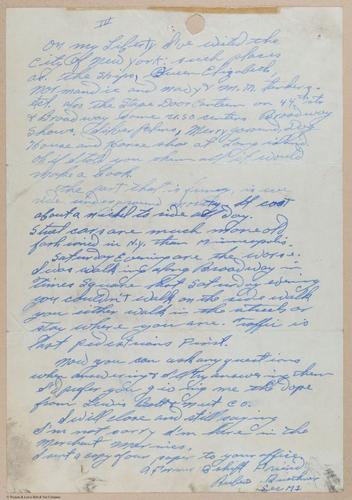 IV
On my Liberty I've visited the
City of New York. such places
as the Ships, Queen Elizabeth
Normandie and
also the Stage Door Canteen on 44th st
& Broadway some U.S.O centers Broadway
Shows, Merry ground, Dog
House and horse show at Long island
Oh if I told you them all it would
make a book.
The part that is funny, is we
ride underground It cost
about a nickel to ride all day.
Street cars are much more old
fashioned in N.Y. than Minneapolis.
Saturday Evening are the worse.
I was walking along Broadway in
Times Square that Saturday evening
you couldn't walk on the side walk
you either walk in the streets or
stay where you are. Traffic is
Last Pedestrians First.
Now you can ask any questions
when answering &
I'd prefer you giving me the dope
from Lewis Bolt & Nut Co.
I will close and still saying
I'm not sorry I'm here in the
Merchant Marines,
Sent a copy of your paper to your office,
A Former Friend
Sec 172
© Preston & Leroy Bolt & Nut Company